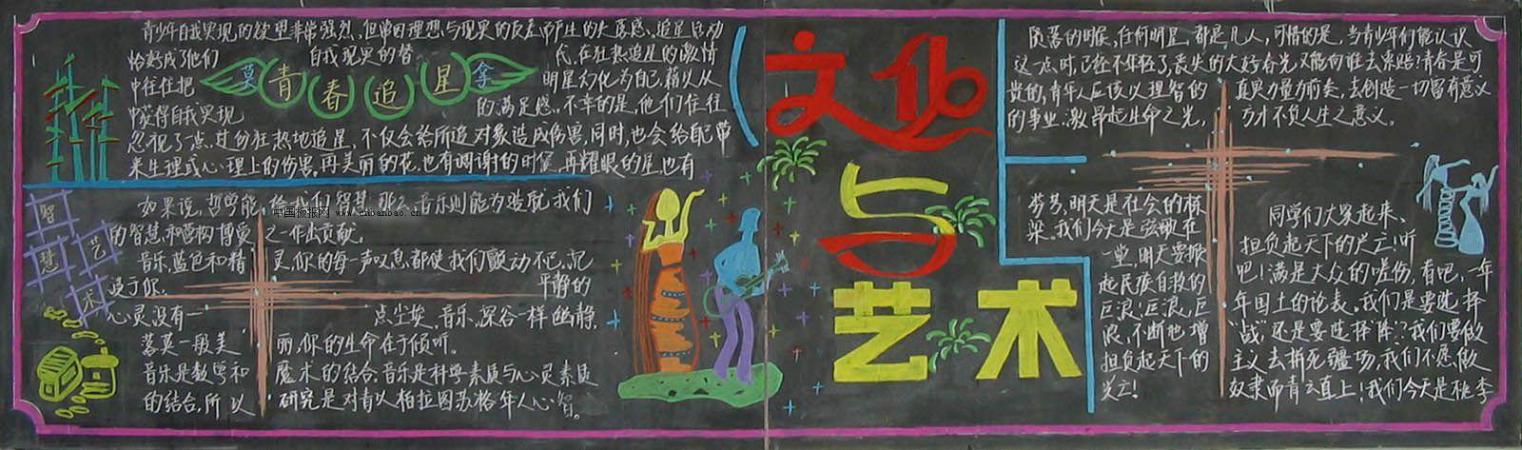 青少年自我实现的欲望非常强烈,但常因理想与现实的反差而产生的失落感、追星活动
恰好成了他们 自我现实的替 代,在狂热追星的激情
中往往把 明星幻化为自己,藉以从
莫青春追星拿
中获得自我实现 的满足感。不幸的是,他们往往
忽视了一点,过份狂热地追星,不仅会给所追对象造成伤害,同时,也会给自己带
来生理或心理上的伤害,再美丽的花,也有凋谢的时候,再耀眼的星也有
智慧
艺术
如果说,哲学能给我们智慧,那么,音乐则能为造就我们
的智慧和营构博爱之作出贡献。
中国板报网 www.cnbanbao.cn
音乐,蓝色和精 灵,你的每一声叹息都使我们颤动不已,记
没了你、 平静的
心灵没有一 点尘埃,音乐,深谷一样幽静,
落英一般美 丽,你的生命在于倾听。
音乐是数学和 魔术的结合,音乐是科学素质与心灵素质
的结合,所以 研究是对青以柏拉图苏格年人心智。
文化
与
艺术
陨落的时候,任何明星,都是凡人,可惜的是,当青少年们能认识
这一点时,已经不年轻了,丧失的大好春光又能向谁去索赔?青春是可
贵的,青年人应该以理智的 真实力量为前奏,去创造一切留有意义
的事业,激昂起生命之光, 方才不负人生之意义。
芬芳,明天是社会的栋
梁。我们今天是弦歌在
一堂,明天要掀
起民族自救的
巨浪!巨浪,巨
浪,不断地增
担负起天下的
兴亡!
同学们大家起来,
担负起天下的兴亡!听
吧!满是大众的嗟伤,看吧,一年
年国土的沦丧。我们是要选择
“战”还是要选择“降”?我们要做
主义去拼死疆场,我们不愿做
奴隶而青云直上!我们今天是桃李